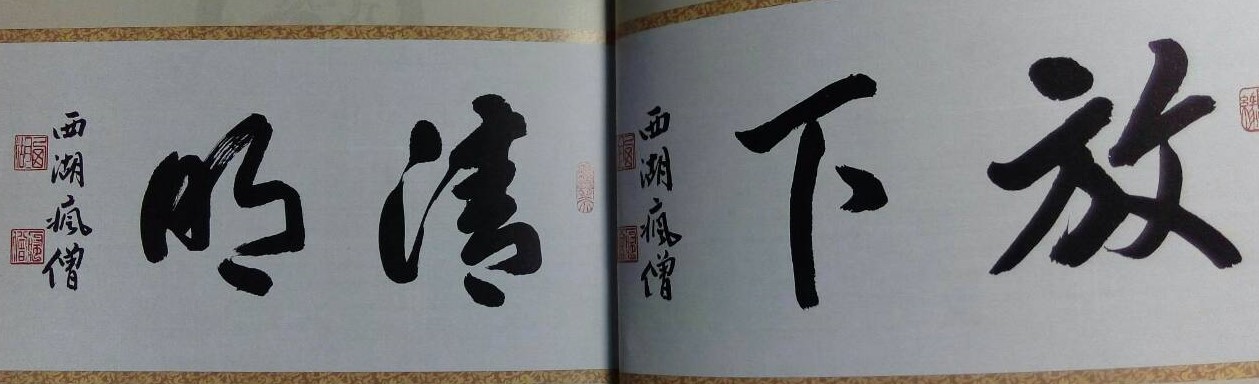 放下
西湖瘋僧
清明
西湖瘋僧